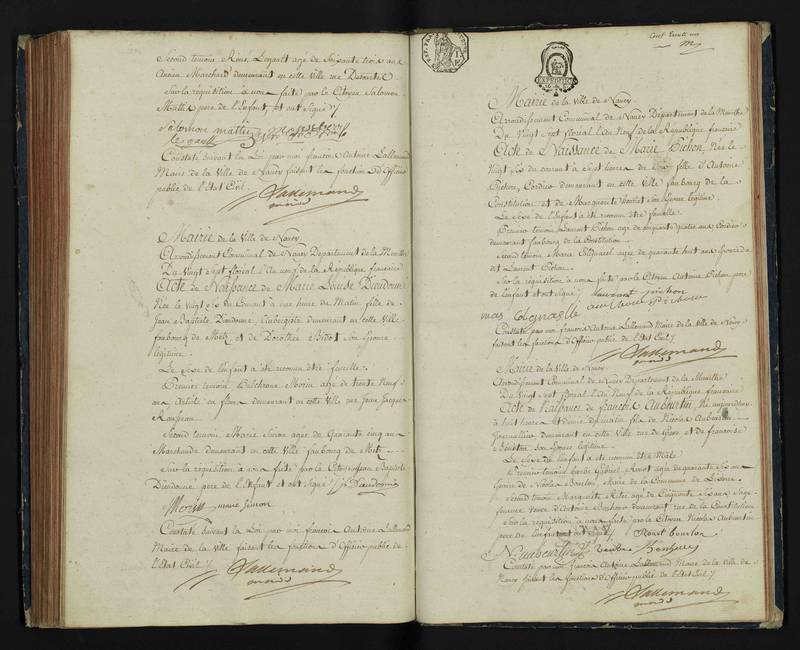 Second temoin Rémi Legault agé de Soixante trois ans
Ancien Marchand demeurant en cette Ville rue
Sur la réquisition à nous faite par le Citoyen Salomon
pere de l'Enfant, et ont Signé
Salomon
legault
Constaté Suivant la Loi par moi françois Antoine Lallemand
Maire de la Ville de Nancy faisant les fonctions d'Officier
public de l'Etat Civil
Lallemand
Mairie de la Ville de Nancy
Arrondissement Communal de Nancy Département de la Meurthe
Du Vingt Sept floréal l'an neuf de la République française
Acte de Naissance de Marie Louise Dieudonné
Née le Vingt Six du Courant à une heure du Matin fille de
Jean Baptiste Dieudonné Aubergiste demeurant en cette Ville
faubourg de Metz et de Dorothée Bidot Son Epouse
légitime
Le Sexe de l'enfant a été reconnu être femelle
Premier temoin Morin agé de trente Neuf
ans Artiste en fleurs demeurant en cette Ville rue Jean Jacques
Rousseau
Second temoin Marie Simon agée de Quarante cinq ans
Marchande demeurant en cette Ville faubourg de Metz
Sur la réquisition à nous faite par le Citoyen Jean Baptiste
Dieudonné pere de l'Enfant et ont Signé
Morin marie Simon
Constaté Suivant la Loi par moi françois Antoine Lallemand
Maire de la Ville faisant les fonctions d'Officier public de
l'Etat Civil
Lallemand
Cent Vingt un
Mairie de la Ville de Nancy
Arrondissement Communal de Nancy Département de la Meurthe
Du Vingt Sept floréal l'an Neuf de la République française
Acte de Naissance de Marie Pichon, Née le
Vingt Six du courant à Sept heures du Soir fille d'Antoine
Pichon, Cordier demeurant en cette Ville faubourg de la
Constitution et de Marguerite Son Epouse légitime
Le Sexe de l'Enfant a été reconnu être femelle
Premier temoin Laurent Pichon agé de Soixante quatre ans Cordier
demeurant faubourg de la Constitution
Second temoin Marie agée de quarante huit ans Epouse du
dit Laurent Pichon
Sur la réquisition à nous faite par le Citoyen Antoine Pichon pere
de l'enfant et ont Signé Laurent pichon
Constaté par moi françois Antoine Lallemand Maire de la Ville de Nancy
faisant les fonctions d'Officier public de l'Etat Civil
Lallemand
Mairie de la Ville de Nancy
Arrondissement Communal de Nancy Département de la Meurthe
Du Vingt Sept floréal l'an Neuf de la République française
Acte de Naissance de françois Aubertin, Né
à huit heures et demie du matin fils de Nicolas Aubertin
Journallier demeurant en cette Ville rue de et de françoise
Son Epouse légitime
Le Sexe de l'enfant a été reconnu être Mâle
Premier temoin Barbe Gabriel agée de quarante Six ans
femme de Nicolas Bourlon, Maire de la Commune de
Second temoin Marguerite agée de Cinquante Six ans Sage
femme Veuve d'Antoine demeurant rue de la Constitution
Sur la réquisition à nous faite par le Citoyen Nicolas Aubertin
pere de l'enfant et ont Signé
Constaté par moi françois Antoine Lallemand Maire de la Ville de
Nancy faisant les fonctions d'Officier public de l'Etat Civil
Lallemand